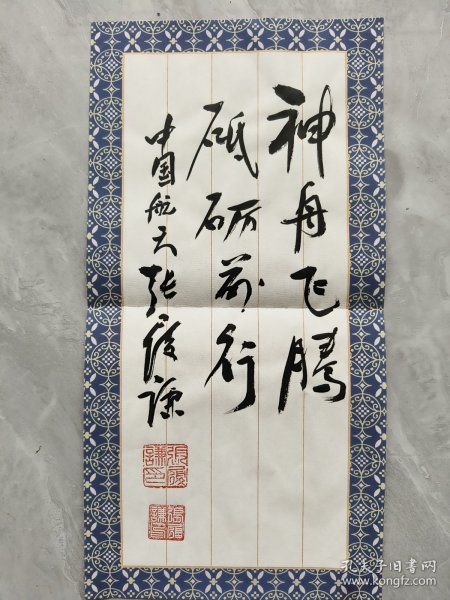 神舟飞腾
砥砺前行
中国航天张履谦
張履謙印
孔夫子旧书网
www.kongfz.com